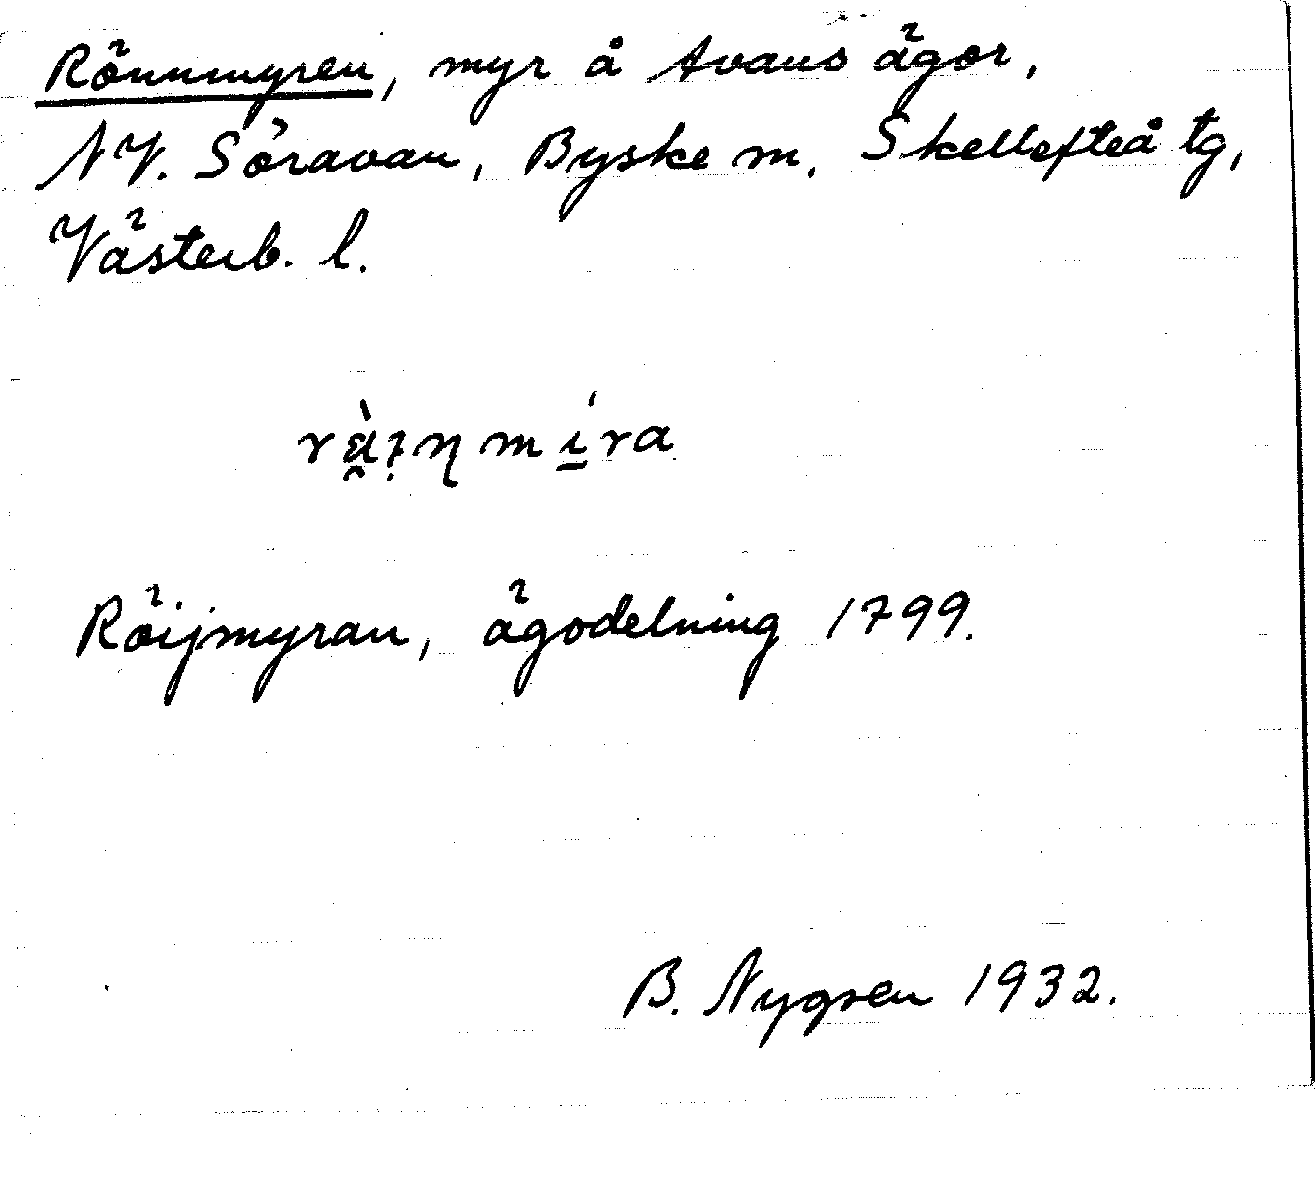 Rönnmyren, myr å Avans ägor,
NV. Söravan, Byske sn, Skellefteå tg,
Västerb. l.
Röijmyran, ägodelning 1799.
B. Nygren 1932.